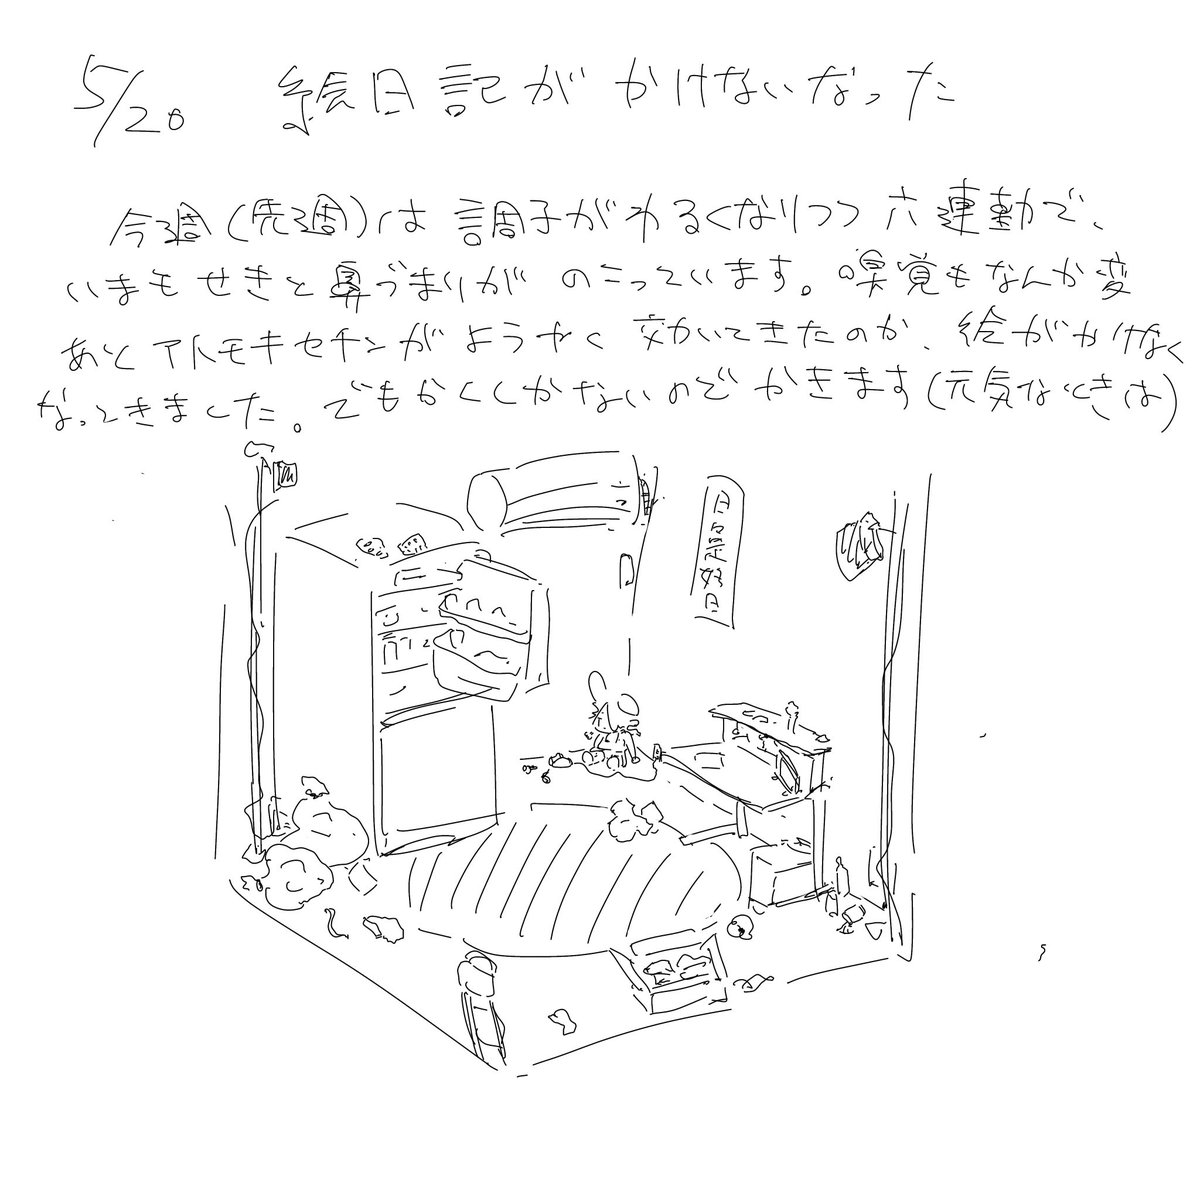 5/20 絵日記がかけないなった
今週(先週)は調子がわるくなりつつ六連勤で、
いまもせきと鼻づまりがのこっています。嗅覚もなんか変
あとアトモキセチンがようやく効いてきたのか、絵がかけなく
なってきました。でもかくしかないのでかきます(元気なときは)
日々是好日